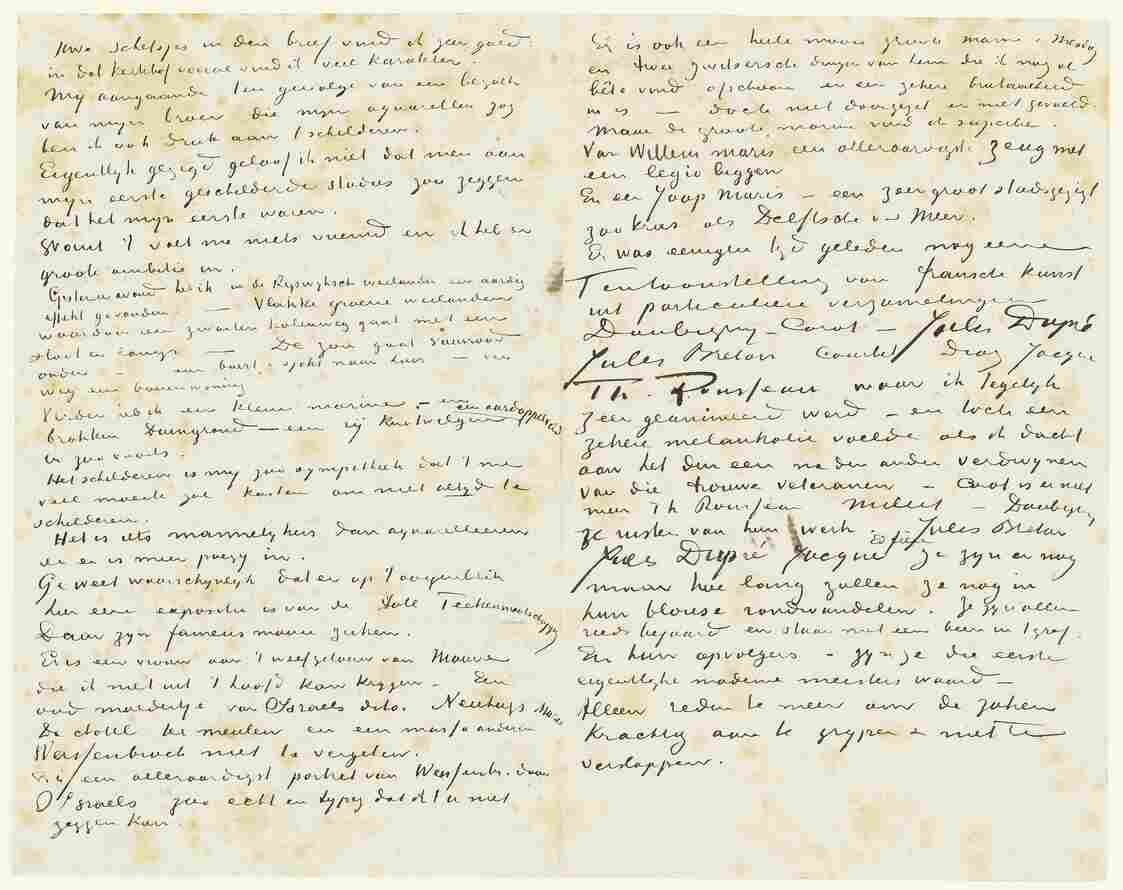 Uwe schetsjes in den brief vind ik zeer goed
in dat kerkhof vooral vind ik veel karakter.
Mij aangaande ten gevolge van een bezoek
van mijn broer die mijn aquarellen zag
ben ik ook druk aan 't schilderen.
Eigentlijk gezegd geloof ik niet dat men aan
mijn eerste geschilderde studies zou zeggen
dat het mijn eerste waren.
Want 't valt me niets vreemd en ik heb er
groote ambitie in.
Gisteren avond heb ik in de Rijswijksche weilanden een aardig
effekt gevonden — Vlakke groene weilanden
waardoor een zwarten kolenweg gaat met een
sloot er langs — De zon gaat vuurrood
onder — een boertje sjokt naar huis — ver
weg een boerenwoning
Verder heb ik een kleine marine — en een aardappelveld
brokken Duingrond — een rij knotwilgen
en zoo voorts.
Het schilderen is mij zoo sympathiek dat 't me
veel moeite zal kosten om niet altijd te
schilderen.
Het is iets mannelijker dan aquarelleeren
en er is meer poezij in.
Ge weet waarschijnlijk dat er op 't oogenblik
hier eene expositie is van de Holl Teekenmaatschappij
Daar zijn fameus mooie zaken.
Er is een vrouw aan 't weefgetouw van Mauve
die ik niet uit 't hoofd kan krijgen — Een
oud moedertje van Israels dito. Neuhuijs Maris
Du chatel ter meulen en een massa anderen
Weissenbruch niet te vergeten.
Er is een alleraardigst portret van Weissenb. door
Israels zoo echt en typig dat ik 't u niet
zeggen kan.
Er is ook een heele mooie groote marine v Mesdag
en twee zwitsersche dingen van hem die ik nog al
bête vind ofschoon er een zekere brutaliteit
in is — doch niet doorgezet en niet gevoeld.
Maar de groote marine vind ik superbe.
Van Willem maris een alleraardigste zeug met
een legio biggen
En een Jaap Maris — een zeer groot stadsgezigt
zoo kras als Delftsche v d Meer.
Er was eenigen tijd geleden nog eene
Tentoonstelling van fransche kunst
uit particuliere verzamelingen
Daubigny — Corot — Jules Dupré
Jules Breton Courbet Diaz Jacque
Th. Rousseau waar ik tegelijk
zeer geanimeerd werd — en toch een
zekere melankolie voelde als ik dacht
aan het den een na den ander verdwijnen
van die trouwe veteranen — Corot is er niet
meer Th Rousseau Millet — Daubigny
ze rusten van hun werk. Jules Breton
Jules Dupré Jacque Ed frère ze zijn er nog
maar hoe lang zullen ze nog in
hun blouse rondwandelen. Ze zijn allen
reeds bejaard en staan met een been in 't graf.
En hun opvolgers — zijn ze die eerste
eigentlijke moderne meesters waard —
Alleen reden te meer om de zaken
krachtig aan te grijpen en niet te
verslappen.